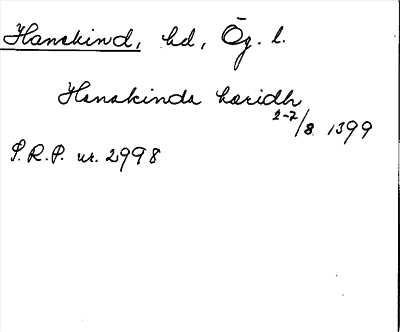 Hanekind, hd, Ög. l.
Hanakinda hæridh
2-7/8 1399
S.R.P. nr. 2998